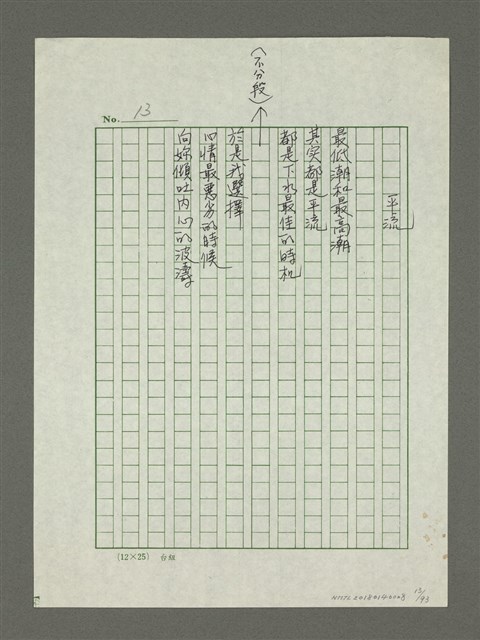 (不分段)
No. 13
平流
最低潮和最高潮
其实都是平流
都是下水最佳的時机
於是我選擇
心情最惡劣的時候
向妳傾吐內心的波濤
(12×25)
13/93